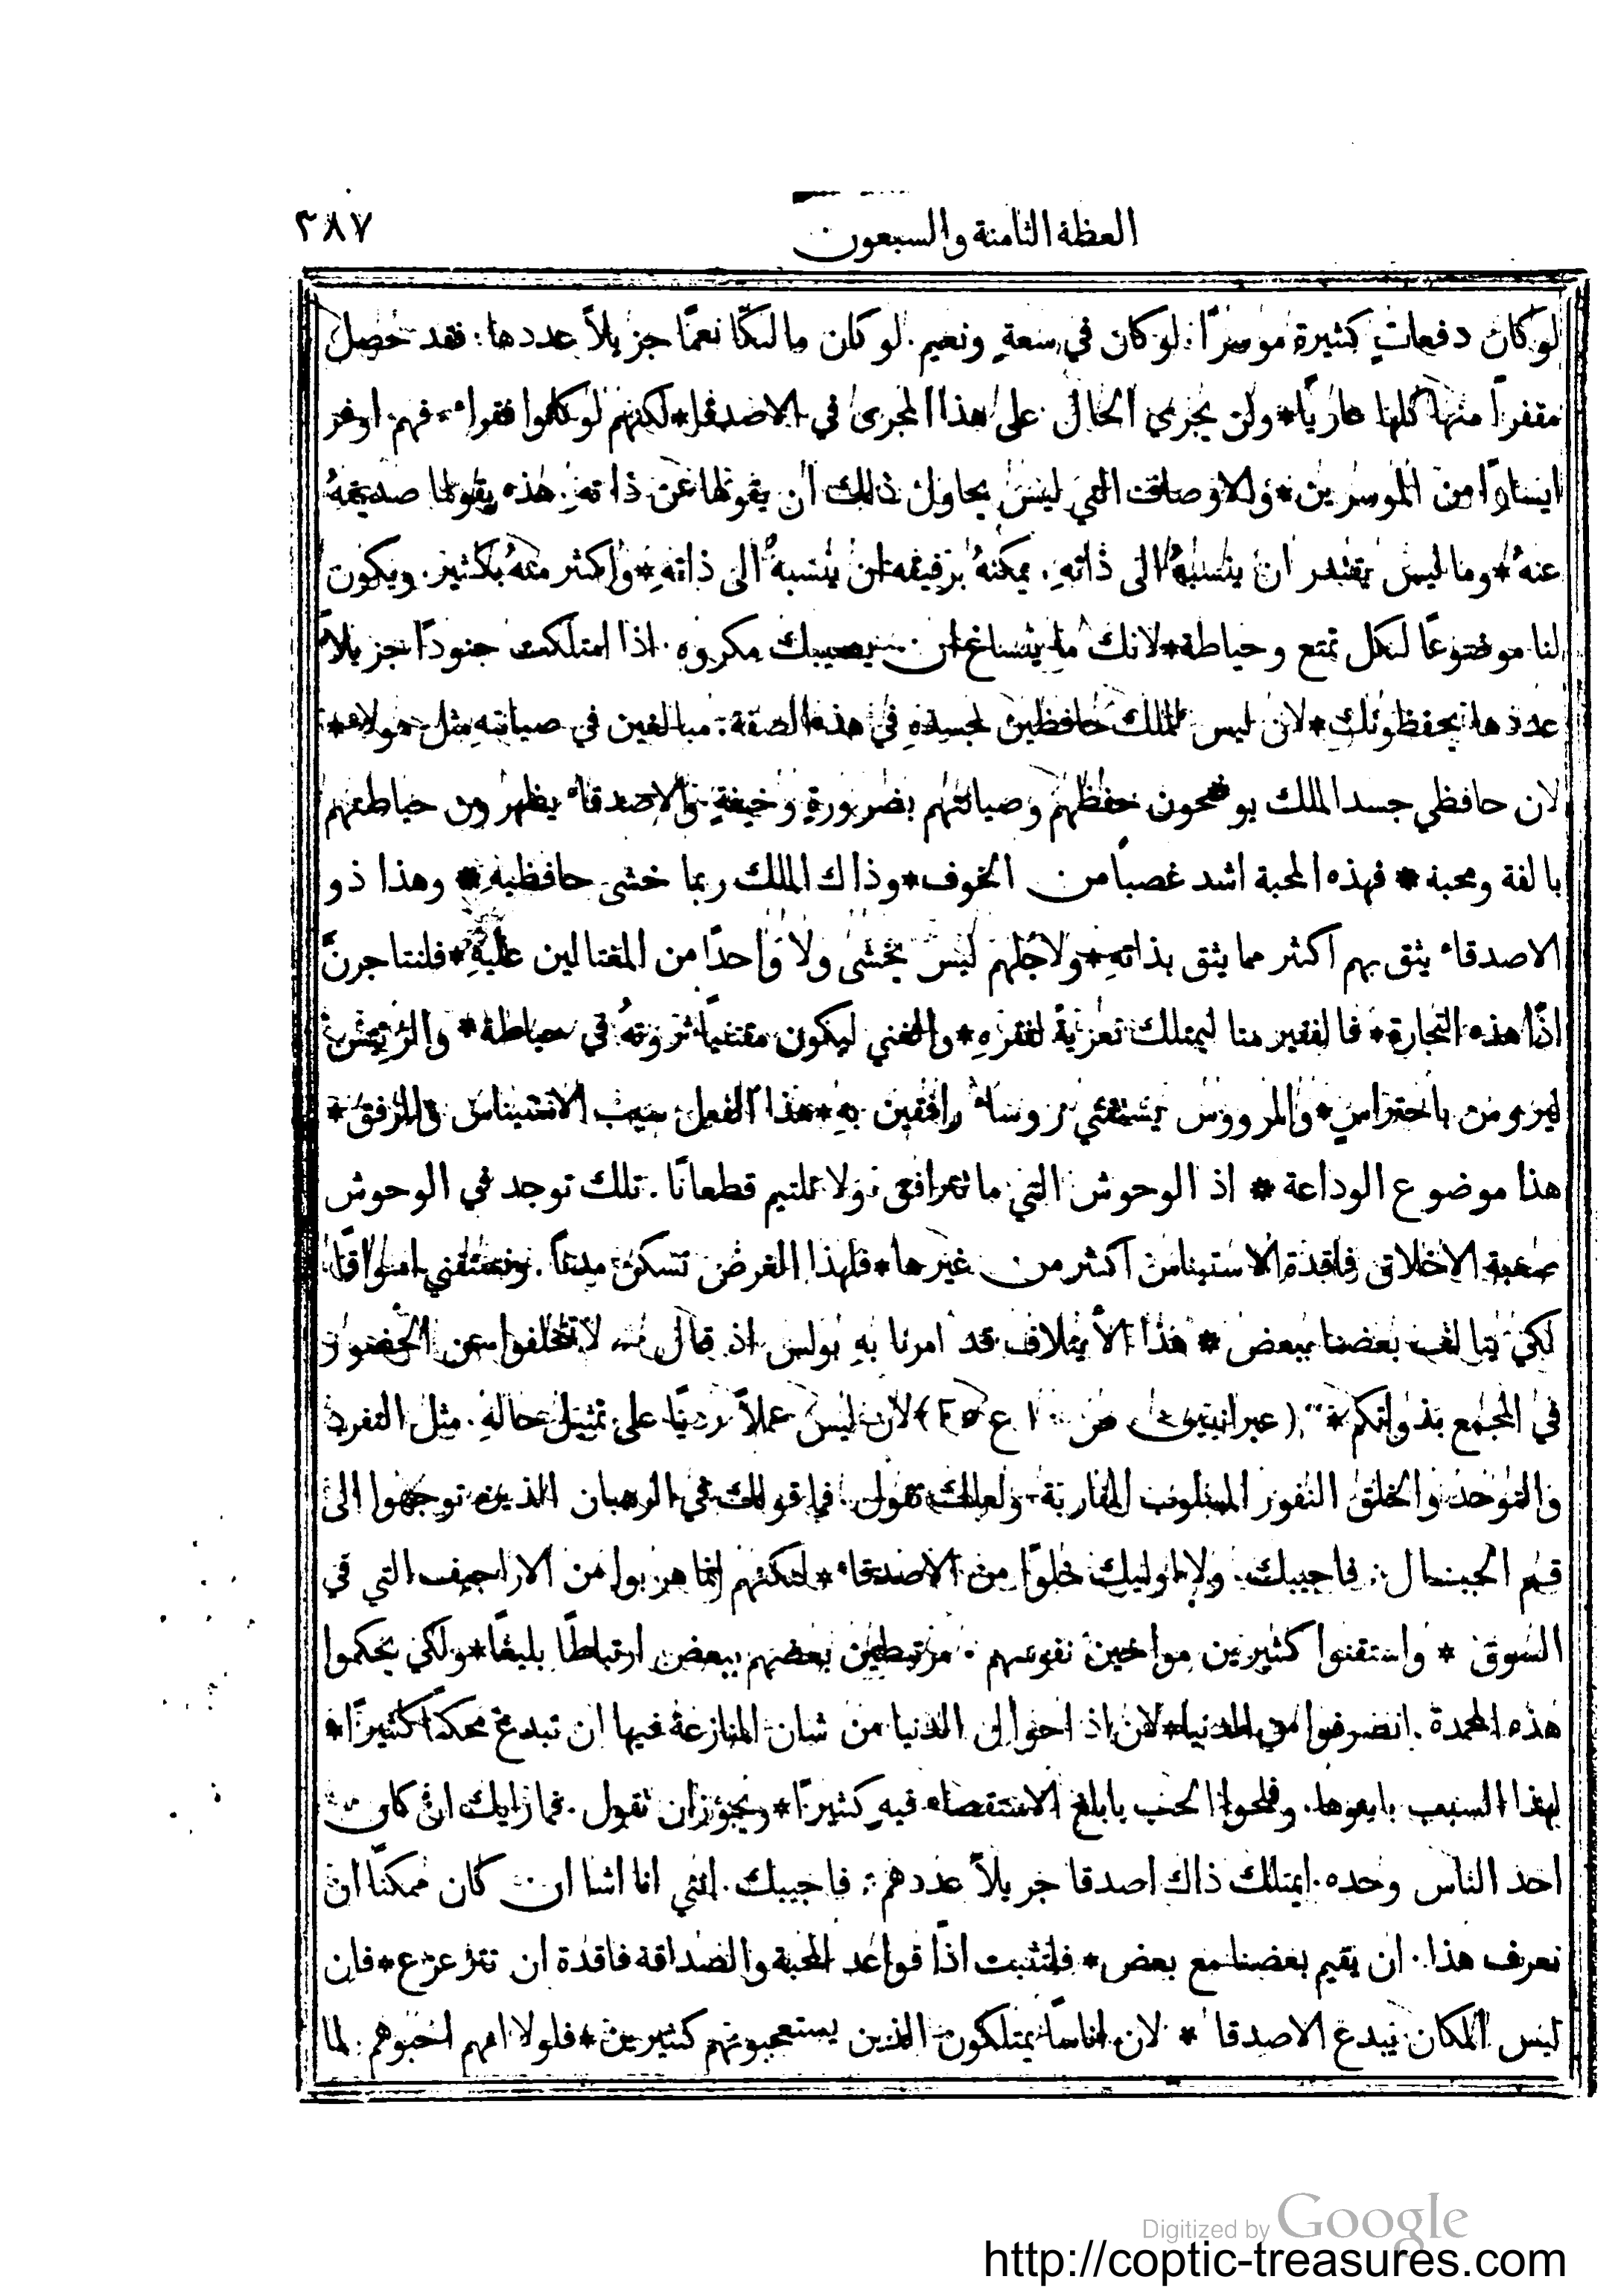 العظة الثامنة والسبعون ٣٨٧
لو كان دفعاتٍ كثيرة موسرًا. لو كان في سعةٍ ونعيم. لو كان مالكًا نعمًا جزيلاً عددها: فقد حصل
مقفرًا منها كلها عاريًا * ولن يجري الحال على هذا المجرى في الاصدقا * لكنهم لو كانوا فقراء. فهم اوفر
ايسارًا من الموسرين * والاوصاف التي ليس يحاول ذلك ان يقولها عن ذاتهِ. هذه يقولها صديقهُ
عنهُ * وما ليس يقتدر ان ينسبهُ الى ذاتهِ. يمكنهُ برفيقه ان ينسبهُ الى ذاتهِ * واكثر منهُ بكثير. ويكون
لنا موضوعًا لكل تمتع وحياطة * لانك ما ينساغ ان سيصيبك مكروه. اذا امتلكت جنودًا جزيلاً
عددها يحفظونك * لان ليس للملك حافظين لجسدهِ في هذه الصفة: مبالغين في صيانتهِ مثل هولاء *
لان حافظي جسد الملك يوضحون حفظهم وصيانتهم بضرورةٍ وخيفةٍ والاصدقاء يظهرون حياطتهم
بالفة ومحبة * فهذه المحبة اشد غصبًا من الخوف * وذاك الملك ربما خشى حافظيهِ * وهذا ذو
الاصدقاء يثق بهم اكثر مما يثق بذاتهِ * ولاجلهم ليس يخشى ولا واحدًا من المغتالين عليهِ * فلنتاجرنَّ
اذًا هذه التجارة * فالفقير منا ليمتلك تعزيةً لفقرهِ * والغني ليكون مقتنيًا ثروتهُ في حياطة * والرئيس
ليرومن باحتراسٍ * والمرووس يستقني روساء رافقين بهِ * هذا الفعل سبب الاستيناس والرفق *
هذا موضوع الوداعة * اذ الوحوش التي ما تترافق ولا تلتيم قطعانًا. تلك توجد في الوحوش
صعبة الاخلاق فاقدة الاستيناس اكثر من غيرها * فلهذا الغرض نسكن مدنًا. ونستقني اسواقًا
لكي يتالف بعضنا ببعض * هذا الأيتلاف قد امرنا بهِ بولس اذ قال لا تتخلفوا عن الحضور
في المجمع بذواتكم * " (عبرانيين ص ١٠ ع ٢٥) لان ليس عملاً رديًا على تمثيل حالهِ. مثل التفرد
والتوحد والخلق النفور المسلوب المقاربة. ولعلك تقول. فما قولك في الرهبان الذين توجهوا الى
قمم الجبال: فاجيبك. ولا اوليك خلوًا من الاصدقاء * لكنهم انما هربوا من الاراجيف التي في
السوق * واستقنوا كثيرين مواخين نفوسهم. مرتبطين بعضهم ببعض ارتباطًا بليغًا * ولكي يحكموا
هذه المحمدة. انصرفوا من الدنيا * لان اذ احوال الدنيا من شان المنازعة فيها ان تبدع محكًا كثيرًا *
لهذا السبب باينوها. وفلحوا الحب بابلغ الاستقصاء فيهِ كثيرًا * ويجوز ان تقول. فما رايك ان كان
احد الناس وحده. ايمتلك ذاك اصدقا جزيلاً عددهم: فاجيبك. انني انا اشا ان كان ممكنًا ان
نعرف هذا. ان يقيم بعضنا مع بعض * فلتثبت اذًا قواعد المحبة والصداقة فاقدة ان تتزعزع * فان
ليس المكان يبدع الاصدقا * لان اناسًا يمتلكون الذين يستعجبونهم كثيرين * فلولا انهم احبوهم: لما
Digitized by Google
http://coptic-treasures.com